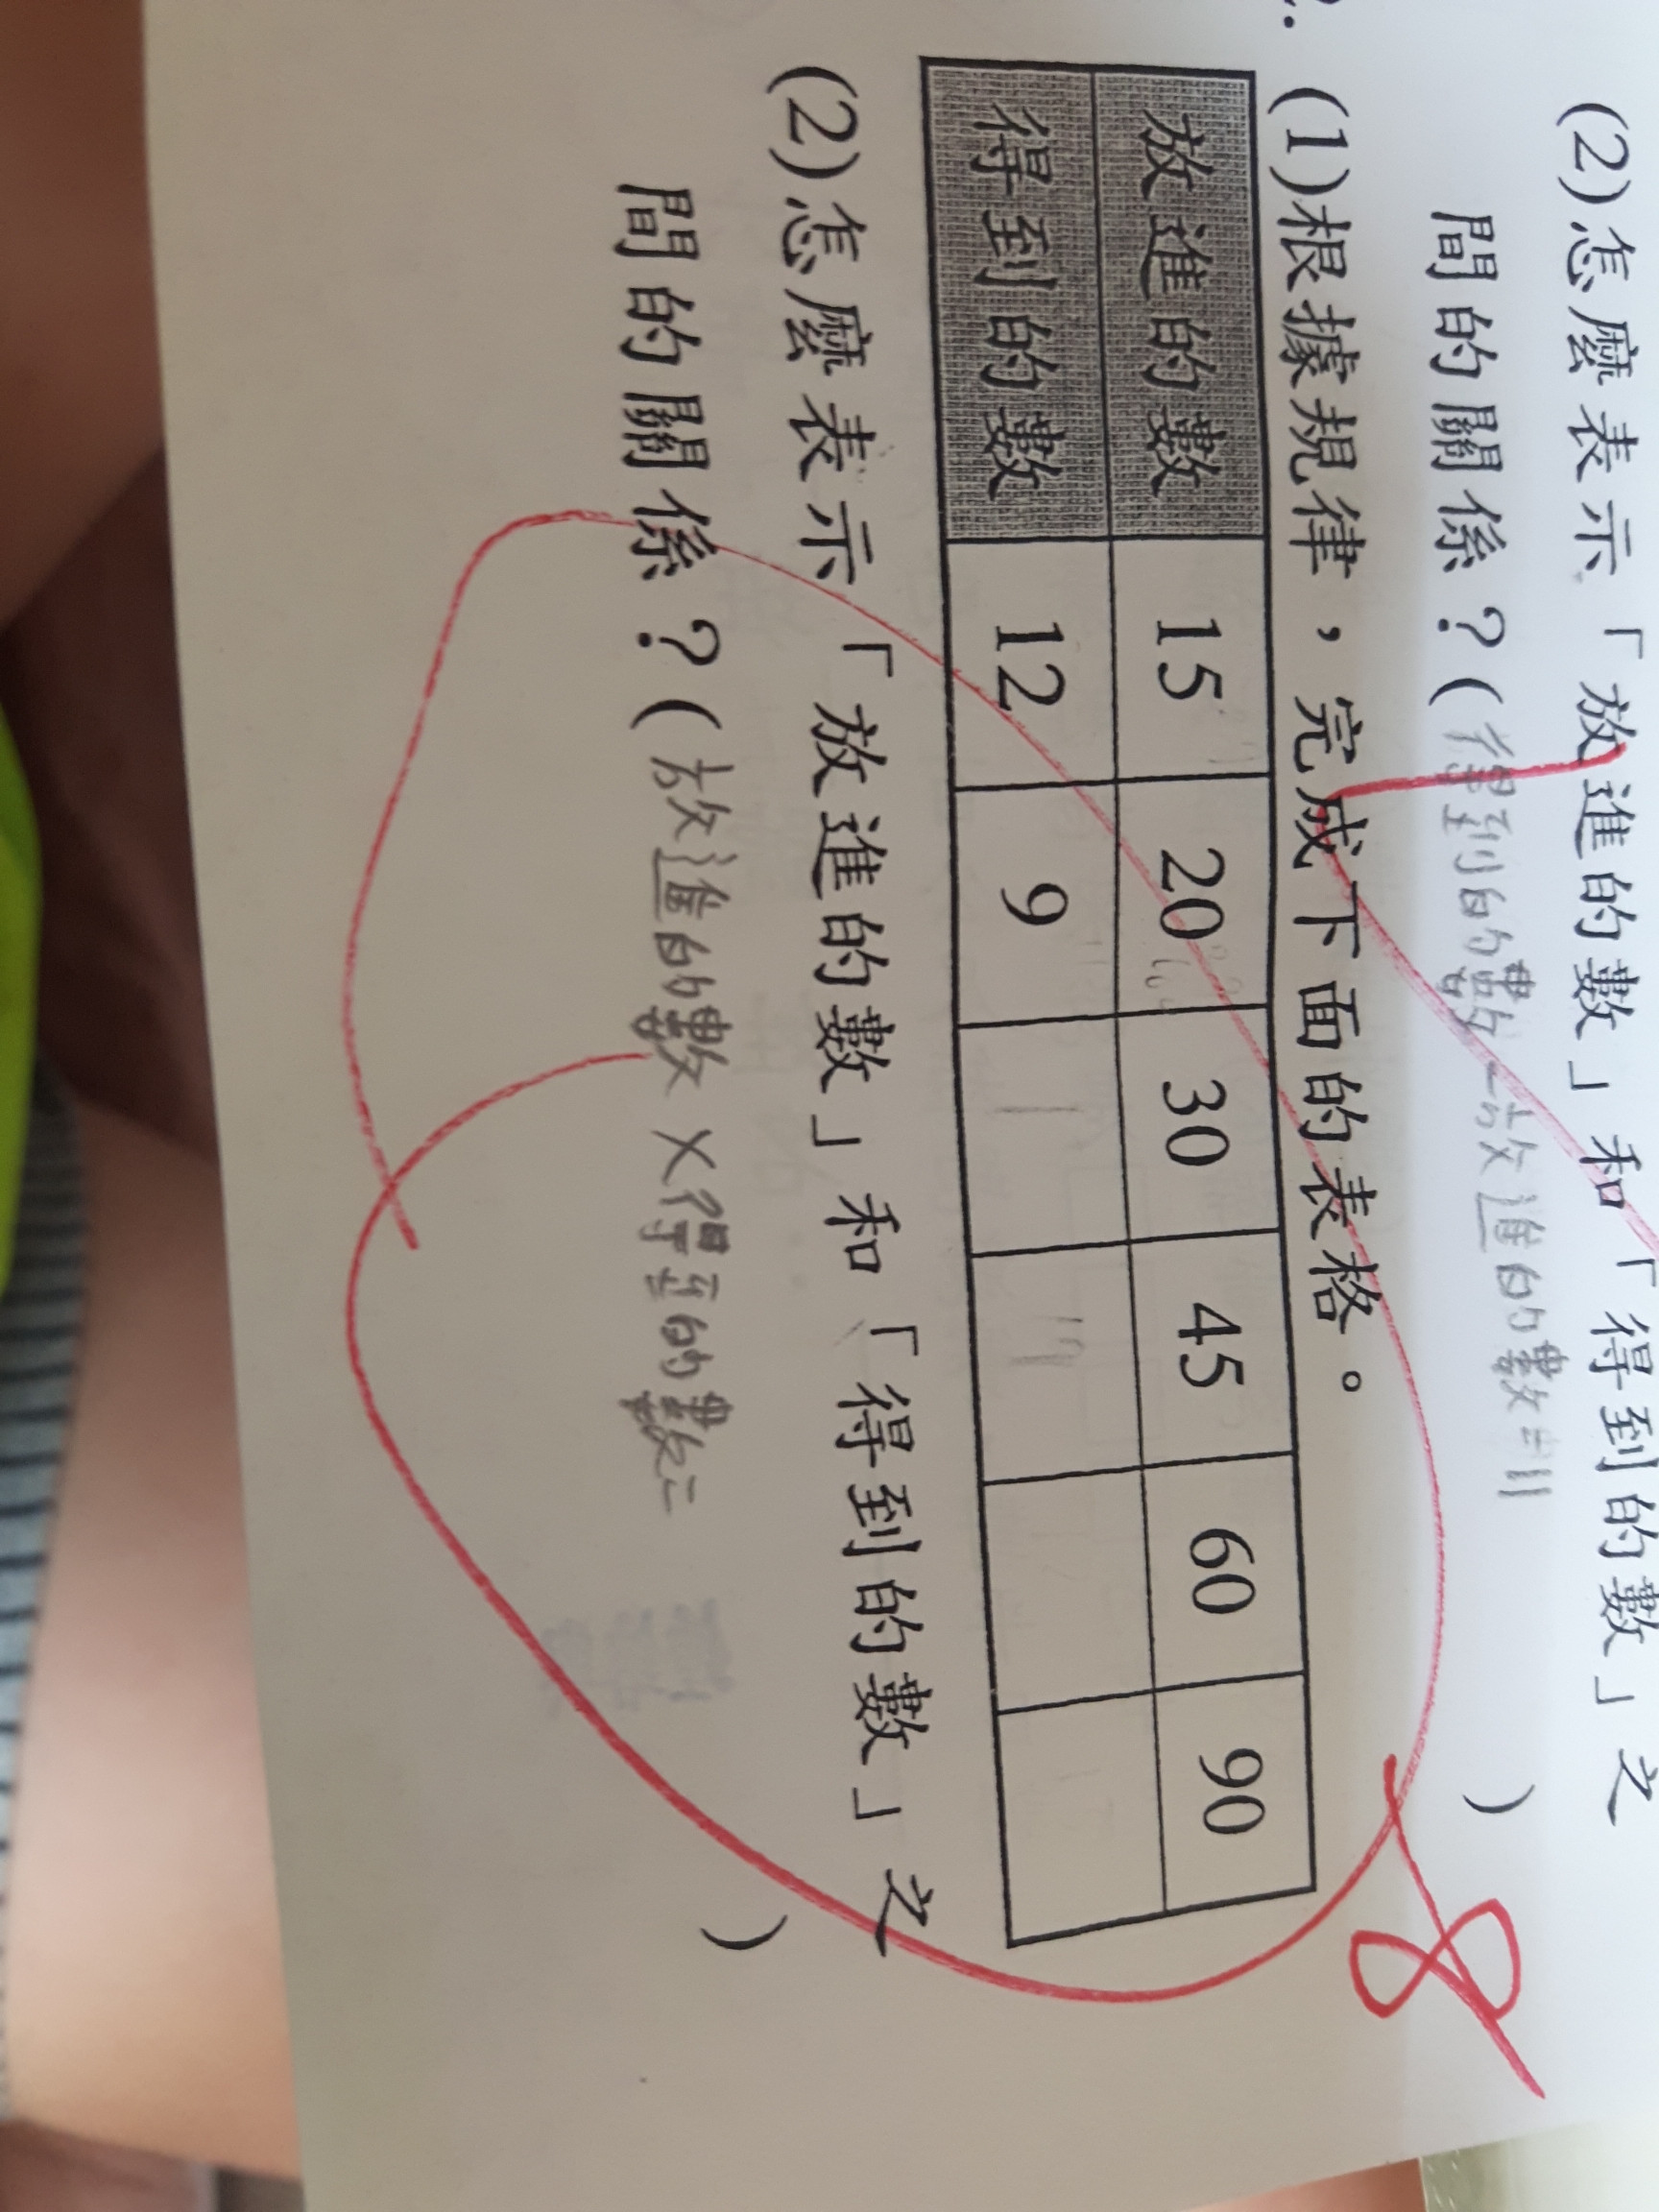 (2)怎麼表示「放進的數」和「得到的數」之
間的關係？(得到的數-放進的數=11)
2.
(1)根據規律，完成下面的表格。
放進的數 15 20 30 45 60 90
得到的數 12 9
8
(2)怎麼表示「放進的數」和「得到的數」之
間的關係？(放進的數×得到的數=)